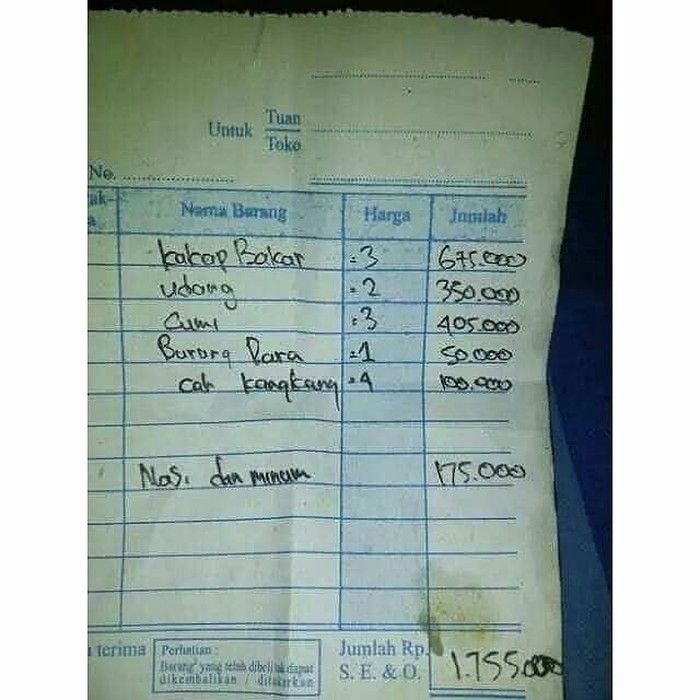 Untuk Tuan
Toko
No.
Nama Barang Harga Jumlah
kakap Bakar =3 675.000
udang =2 350.000
Cumi =3 405.000
Burung Dara =1 50.000
cah kangkung =4 100.000
Nasi dan minum 175.000
terima Perhatian : Jumlah Rp. 1.755.000
Barang yang telah dibeli tak dapat S. E. & O.
dikembalikan / ditukarkan